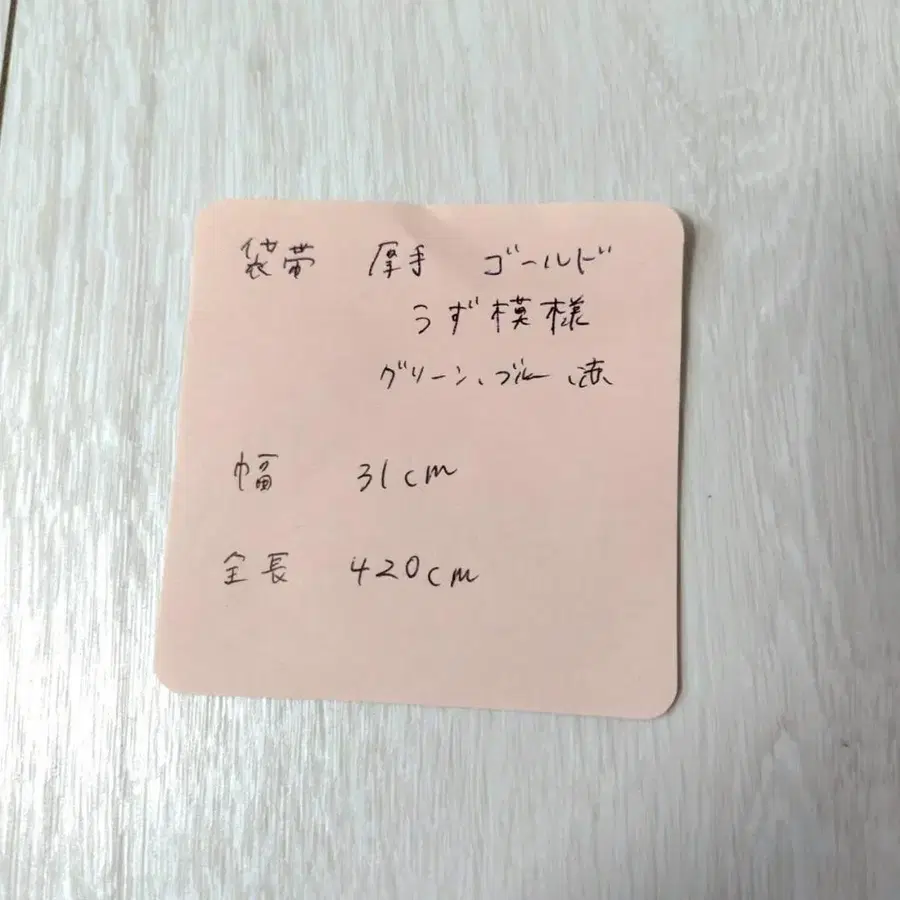 袋帯 厚手 ゴールド
うず模様
グリーン、ブルー、赤、
幅 31cm
全長 420cm